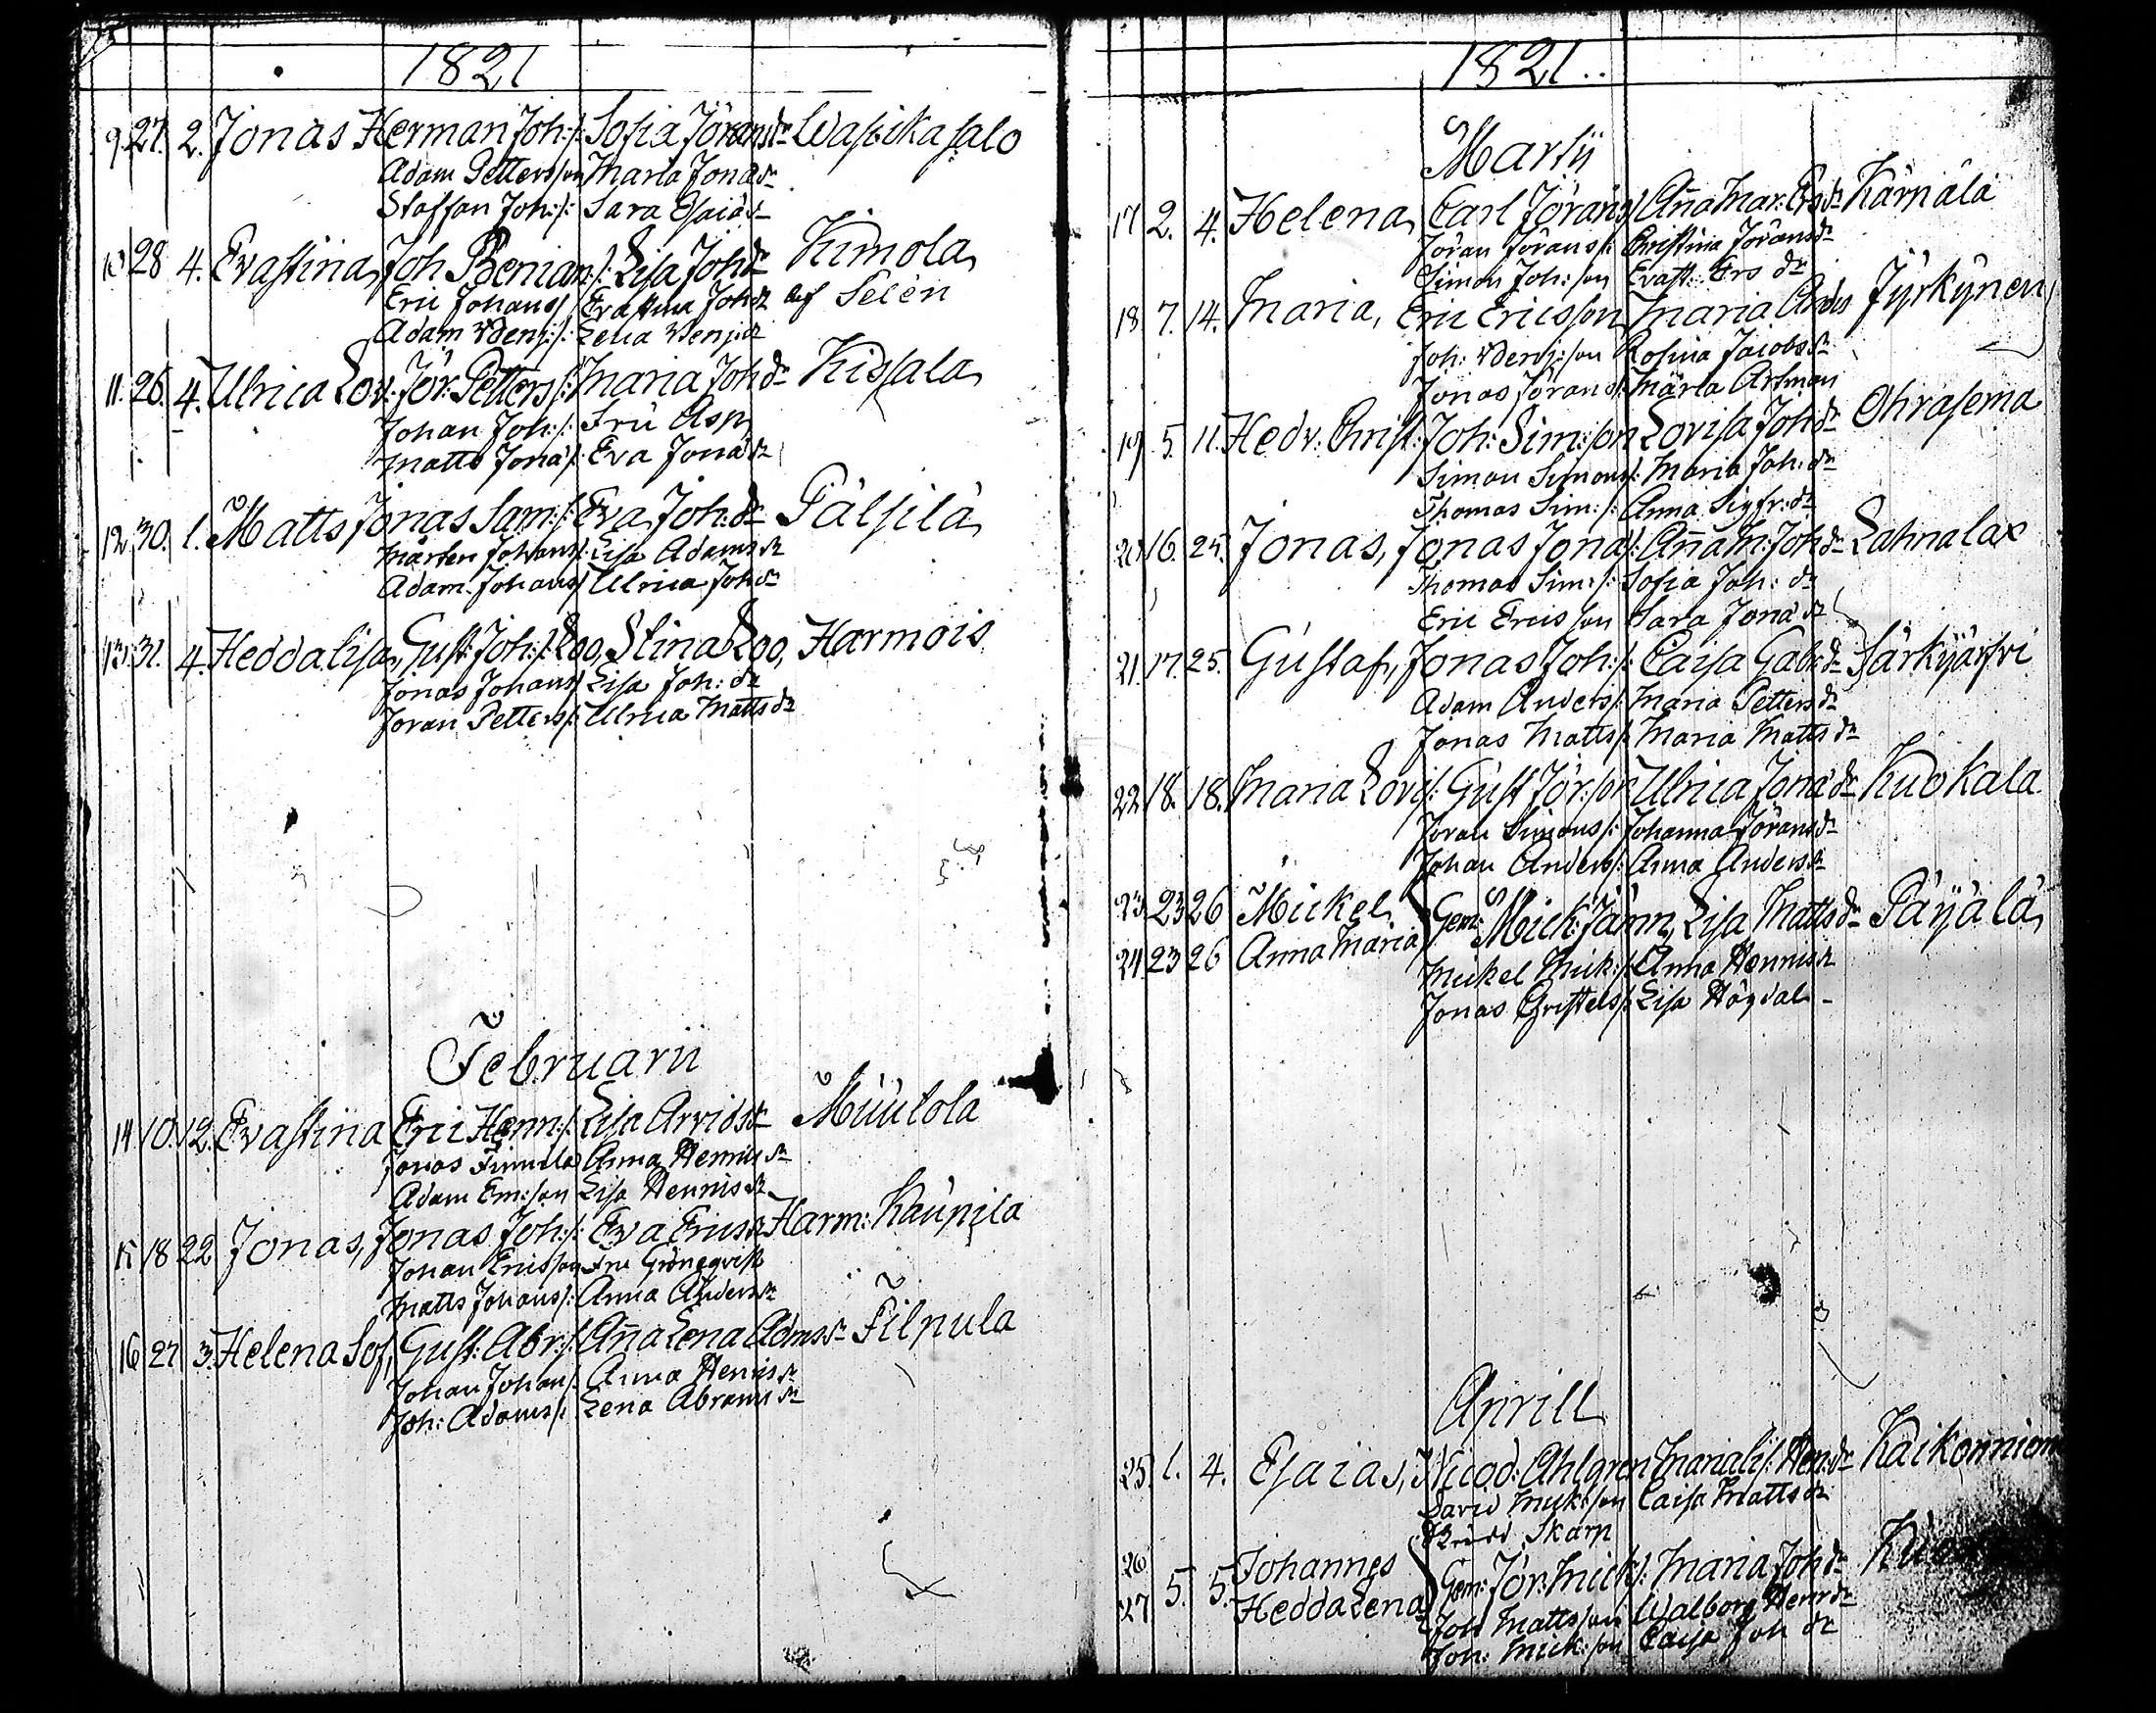 1821
9. 27. 2. Jonas Herman Joh:s: Sofia Göransdr Wasikasalo
Adam Pettersson Maria Jonadr
Staffan Joh:s: Sara Esaiadr
10 28 4. Evastina, Joh Beniam:s: Lisa Johdr Kimola
Eric Johans Evastina Johdr af Selèn
Adam Benj:s: Lena Benjdr
11. 26. 4. Ulrica Lov. Jör: Petters: Maria Johdr Kissala
Johan Joh:s: Fru Asp
Matts Jonas: Eva Jonadr
12. 30. 1. Matts Jonas Sam:s: Eva Joh:dr Pälsilä
Mårten Johans: Lisa Adamsdr
Adam Johans Ulrica Johdr
13. 31. 4. Heddalisa, Gust: Joh:s: Roo, Stina Roo, Harmois
Jonas Johans Lisa Joh:dr
Joran Petters: Ulrica Mattsdr
Februarii
14 10. 12. Evastina Eric Henn:s: Lisa Arvidsdr Muulola
Jonas Anna Hennisdr
Adam Em:son Lisa Hennisdr
15 18 22 Jonas, Jonas Joh:s: Eva Ericsdr Harm: Kaupila
Johan Ericsson Fru Grönqvist
Matts Johans: Anna Andersdr
16 27 3. Helena Sof, Gust: Abr:s: Aña Lena Adamsdr Filpula
Johan Johans: Anna Hennisdr
Joh: Adams: Lena Abramsdr
1821..
Martii
17 2. 4. Helena, Carl Jörans Aña Mar: Ersdr Kärnälä
Jöran Jörans: Christina Jöransdr
Simon Joh:son Evast: Ersdr
18 7. 14. Maria, Eric Ericsson, Maria Anders Jyrkynen
Joh: Benj:son Rosina Jacobsdr
Jonas Jörans: Märta Artman
19 5. 11. Hedv: Christ: Joh: Sim:son Lovisa Johdr Ohrasema
Simon Simons: Maria Joh:dr
Thomas Sim:s: Anna Sigfr:dr
20 16. 25. Jonas, Jonas Jonas: Aña M: Johdr Lahnalax
Thomas Sim:s: Sofia Joh:dr
Eric Ericsson Sara Jonadr
21. 17. 25. Gustaf, Jonas Joh:s: Caisa Gab:dr Särkijärfvi
Adam Anders: Maria Pettersdr
Jonas Matts: Maria Mattsdr
22 18. 18. Maria Lovis: Gust Jör:son Ulrica Jonadr Kuokala
Joran Simons: Johanna Jöransdr
Johan Anders: Anna Andersdr
23. 23 26 Mickel } Gem: Mick: Jämn, Lisa Mattsdr Päijälä
24 23 26 Anna Maria
Mickel Mick:s: Anna Hennisdr
Jonas Christers: Lisa Högdal
Aprill
25. 1. 4. Esaias, Nicod: Ahlgren Marialis: Hen:dr Kaikonniem
David Mick:son Caisa Mattsdr
Skarp
26 Johannes } Gem: Jör: Mick:s: Maria Johdr
27 5. 5. Hedda Lena
Joh Mattsson Walborg Henrdr
Jon: Mick:son Caisa Joh dr